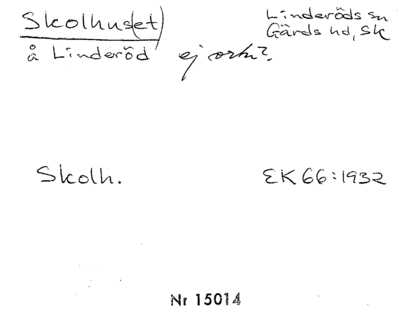 Skolhus(et)
å Linderöd ej ortn?
Linderöds sn
Gärds hd, Sk
Skolh.
EK 66:1932
Nr 15014